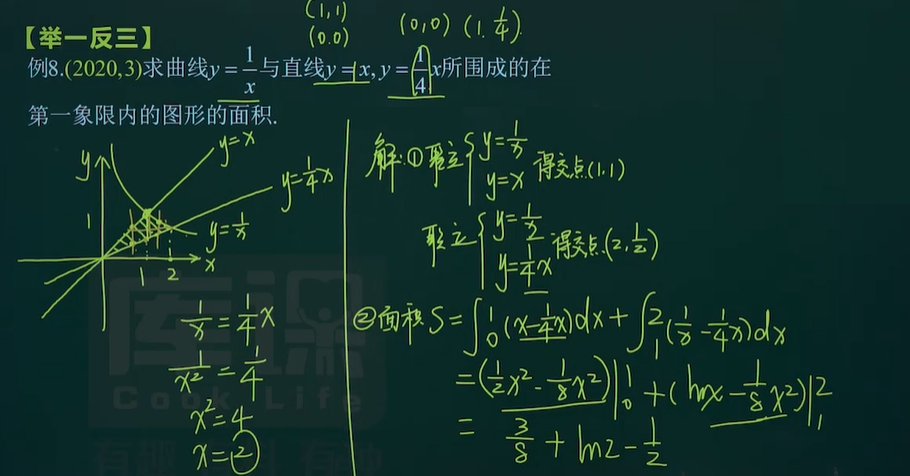 (1,1)
(0.0)
(0,0) (1.1/4).
【举一反三】
例8.(2020,3)求曲线y=1/x与直线y=x,y=1/4x所围成的在
第一象限内的图形的面积.
y
y=x
y=1/4x
1
y=1/x
1 2 x
1/x=1/4x
1/x²=1/4
x²=4
x=2
解:①联立{y=1/x
y=x 得交点(1,1)
联立{y=1/x
y=1/4x 得交点(2,1/2)
②面积S=∫₀¹(x-1/4x)dx+∫₁²(1/x-1/4x)dx
=(1/2x²-1/8x²)|₀¹+(lnx-1/8x²)|₁²
=3/8+ln2-1/2
库课
Cook Life